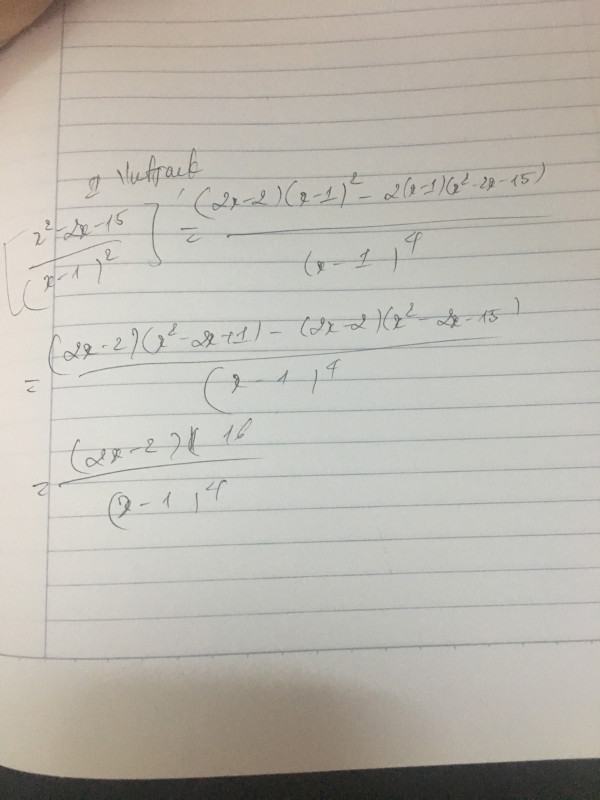 [x²-2x-15/(x-1)²]' = (2x-2)(x-1)²- 2(x-1)(x²-2x-15)/(x-1)⁴
= (2x-2)(x²-2x+1)- (2x-2)(x²-2x-15)/(x-1)⁴
= (2x-2)( 16/(x-1)⁴